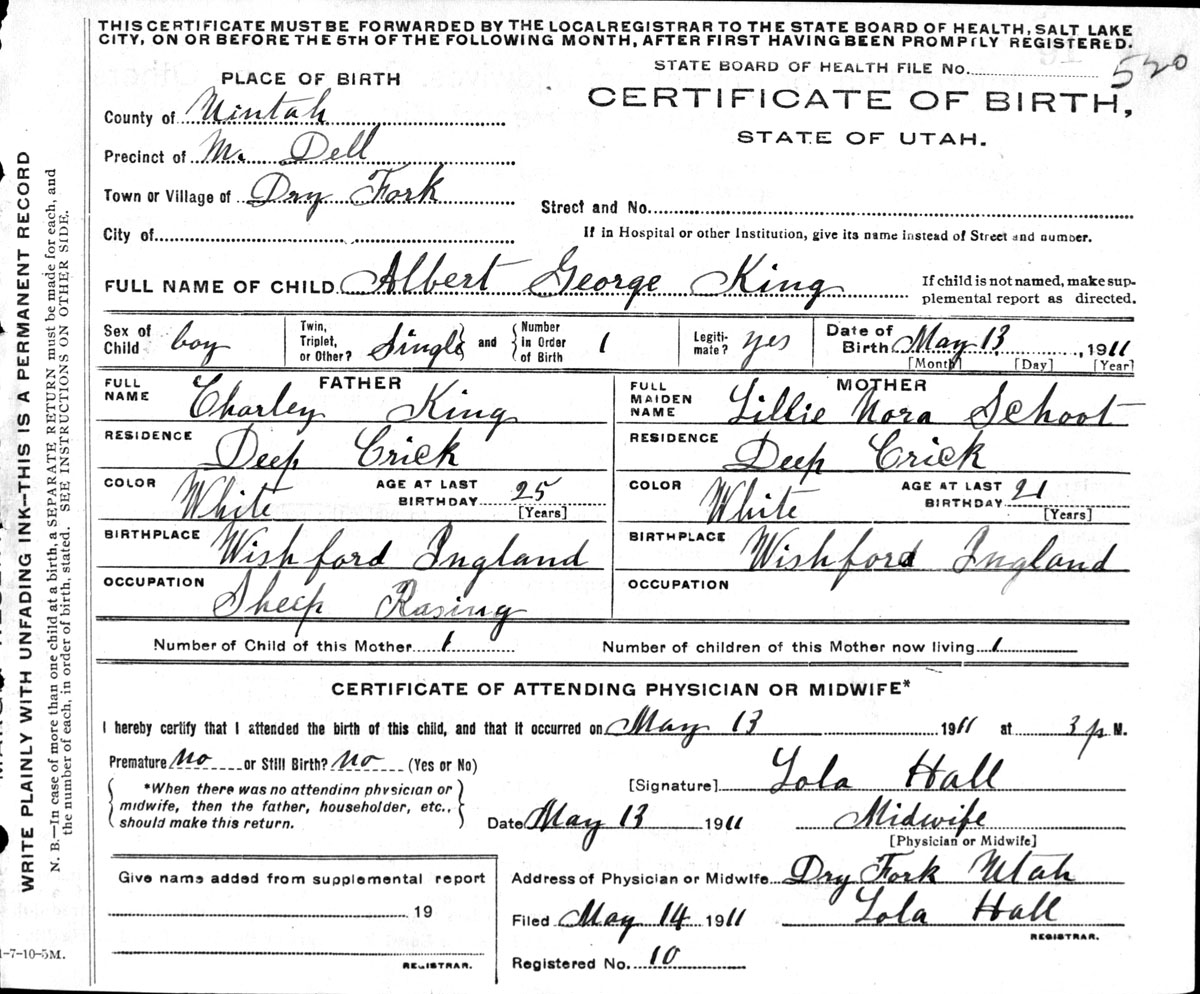 THIS CERTIFICATE MUST BE FORWARDED BY THE LOCAL REGISTRAR TO THE STATE BOARD OF HEALTH, SALT LAKE
CITY, ON OR BEFORE THE 5TH OF THE FOLLOWING MONTH, AFTER FIRST HAVING BEEN PROMPTLY REGISTERED.
STATE BOARD OF HEALTH FILE No. 520
PLACE OF BIRTH
CERTIFICATE OF BIRTH,
STATE OF UTAH.
County of Uintah
Precinct of Mc Dell
Town or Village of Dry Fork
Street and No.
City of
If in Hospital or other Institution, give its name instead of Street and number.
FULL NAME OF CHILD Albert George King
If child is not named, make sup-
plemental report as directed.
Sex of Child boy
Twin, Triplet, or Other? Single and Number in Order of Birth 1
Legiti-mate? yes
Date of Birth May 13, 1911
[Month] [Day] [Year]
FATHER
FULL NAME Charley King
RESIDENCE Deep Crick
COLOR White AGE AT LAST BIRTHDAY 25
[Years]
BIRTHPLACE Wishford Ingland
OCCUPATION Sheep Rasing
MOTHER
FULL MAIDEN NAME Lillie Nora Schoot
RESIDENCE Deep Crick
COLOR White AGE AT LAST BIRTHDAY 21
[Years]
BIRTHPLACE Wishford Ingland
OCCUPATION
Number of Child of this Mother 1 Number of children of this Mother now living 1
CERTIFICATE OF ATTENDING PHYSICIAN OR MIDWIFE*
I hereby certify that I attended the birth of this child, and that it occurred on May 13 1911 at 3 p M.
Premature no or Still Birth? no (Yes or No)
*When there was no attending physician or
midwife, then the father, householder, etc.,
should make this return.
[Signature] Lola Hall
Date May 13 1911 Midwife
[Physician or Midwife]
Give name added from supplemental report
19
REGISTRAR.
Address of Physician or Midwife Dry Fork Utah
Filed May 14 1911 Lola Hall
REGISTRAR.
Registered No. 10
WRITE PLAINLY WITH UNFADING INK—THIS IS A PERMANENT RECORD
N. B.—In case of more than one child at a birth, a SEPARATE RETURN must be made for each, and
the number of each, in order of birth, stated. SEE INSTRUCTIONS ON OTHER SIDE.
-7-10-5M.